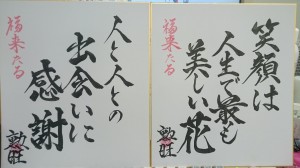 福来たる
笑顔は
人生で最も
美しい花
福来たる
人と人との
出会いに
感謝